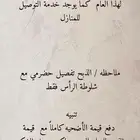 لهذا العام كما يوجد خدمة التوصيل
للمنازل
ملاحظه / الذبح تفصيل حضرمي مع
شلوطة الرأس فقط
تنبيه
دفع قيمة الأضحيه كاملاً مع قيمة